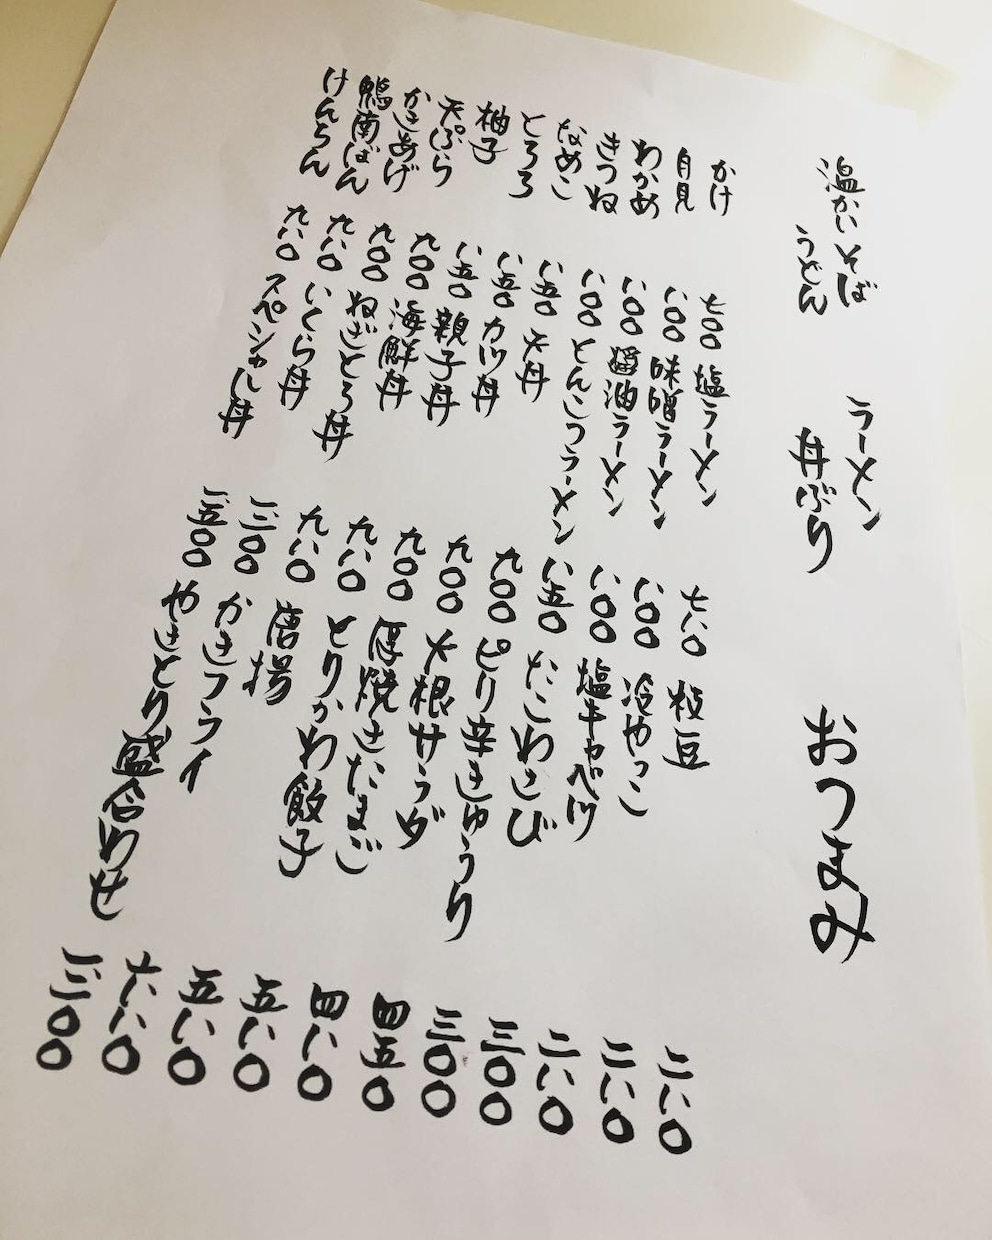 温かいそば
うどん
かけ 七〇〇
月見 八〇〇
わかめ 八〇〇
きつね 八〇〇
なめこ 八五〇
とろろ 八五〇
柚子 八五〇
天ぷら 九〇〇
かきあげ 九〇〇
鴨南ばん 九八〇
けんちん 九八〇
ラーメン
丼ぶり
塩ラーメン 七八〇
味噌ラーメン 八〇〇
醤油ラーメン 八〇〇
とんこつラーメン 八五〇
天丼 九〇〇
カツ丼 九〇〇
親子丼 九〇〇
海鮮丼 九八〇
ねぎとろ丼 九八〇
いくら丼
スペシャル丼 一、五〇〇
おつまみ
枝豆 二八〇
冷やっこ 二八〇
塩キャベツ 二八〇
たこわさび 三〇〇
ピリ辛きゅうり 三〇〇
大根サラダ 四五〇
厚焼きたまご 四八〇
とりかわ餃子 五八〇
唐揚 五八〇
かきフライ 六八〇
やきとり盛合わせ